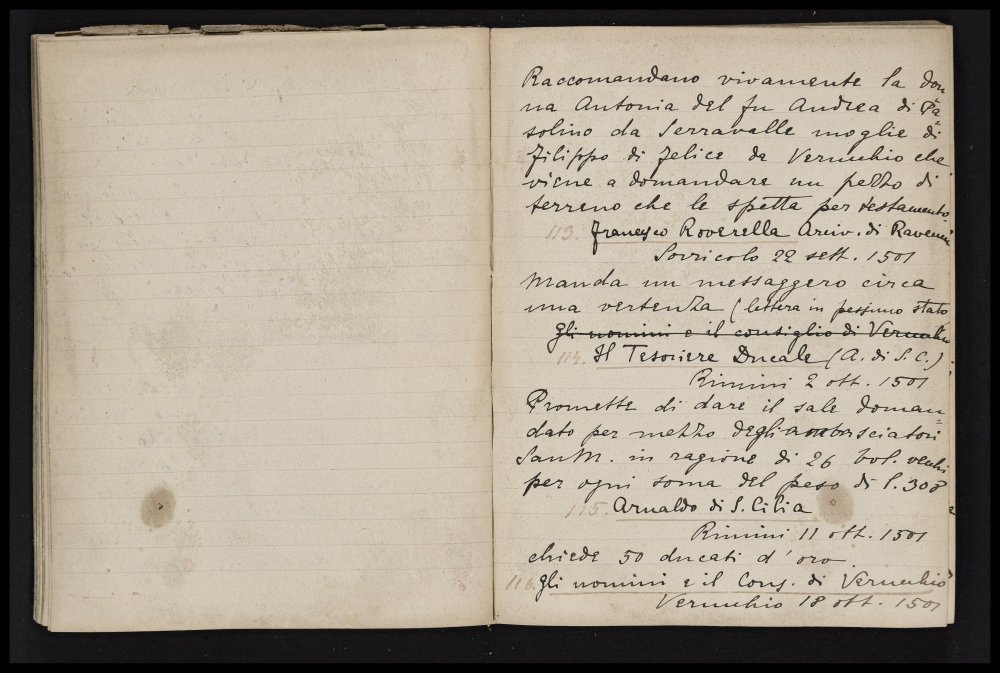 Raccomandano vivamente la don
na Antonia del fu Andrea di Pa=
solino da Serravalle moglie di
Filippo di Felice da Verucchio che
viene a domandare un pezzo di
terreno che le spetta per testamento.
113. Francesco Roverella Arciv. di Ravenna
Sorricolo 22 sett. 1501
Manda un messaggero circa
una vertenza (lettera in pessimo stato
gli uomini e il consiglio di Verucchio
114. Il Tesoriere Ducale (A. di S. C.)
Rimini 2 ott. 1501
Promette di dare il sale doman=
dato per mezzo degli ambasciatori
SanM. in ragione di 26 bol. vecchi
per ogni soma del peso di l. 308
115. Arnaldo di S. Cilia
Rimini 11 ott. 1501
chiede 50 ducati d'oro.
116. gli uomini e il Cons. di Verucchio
Verucchio 18 ott. 1501